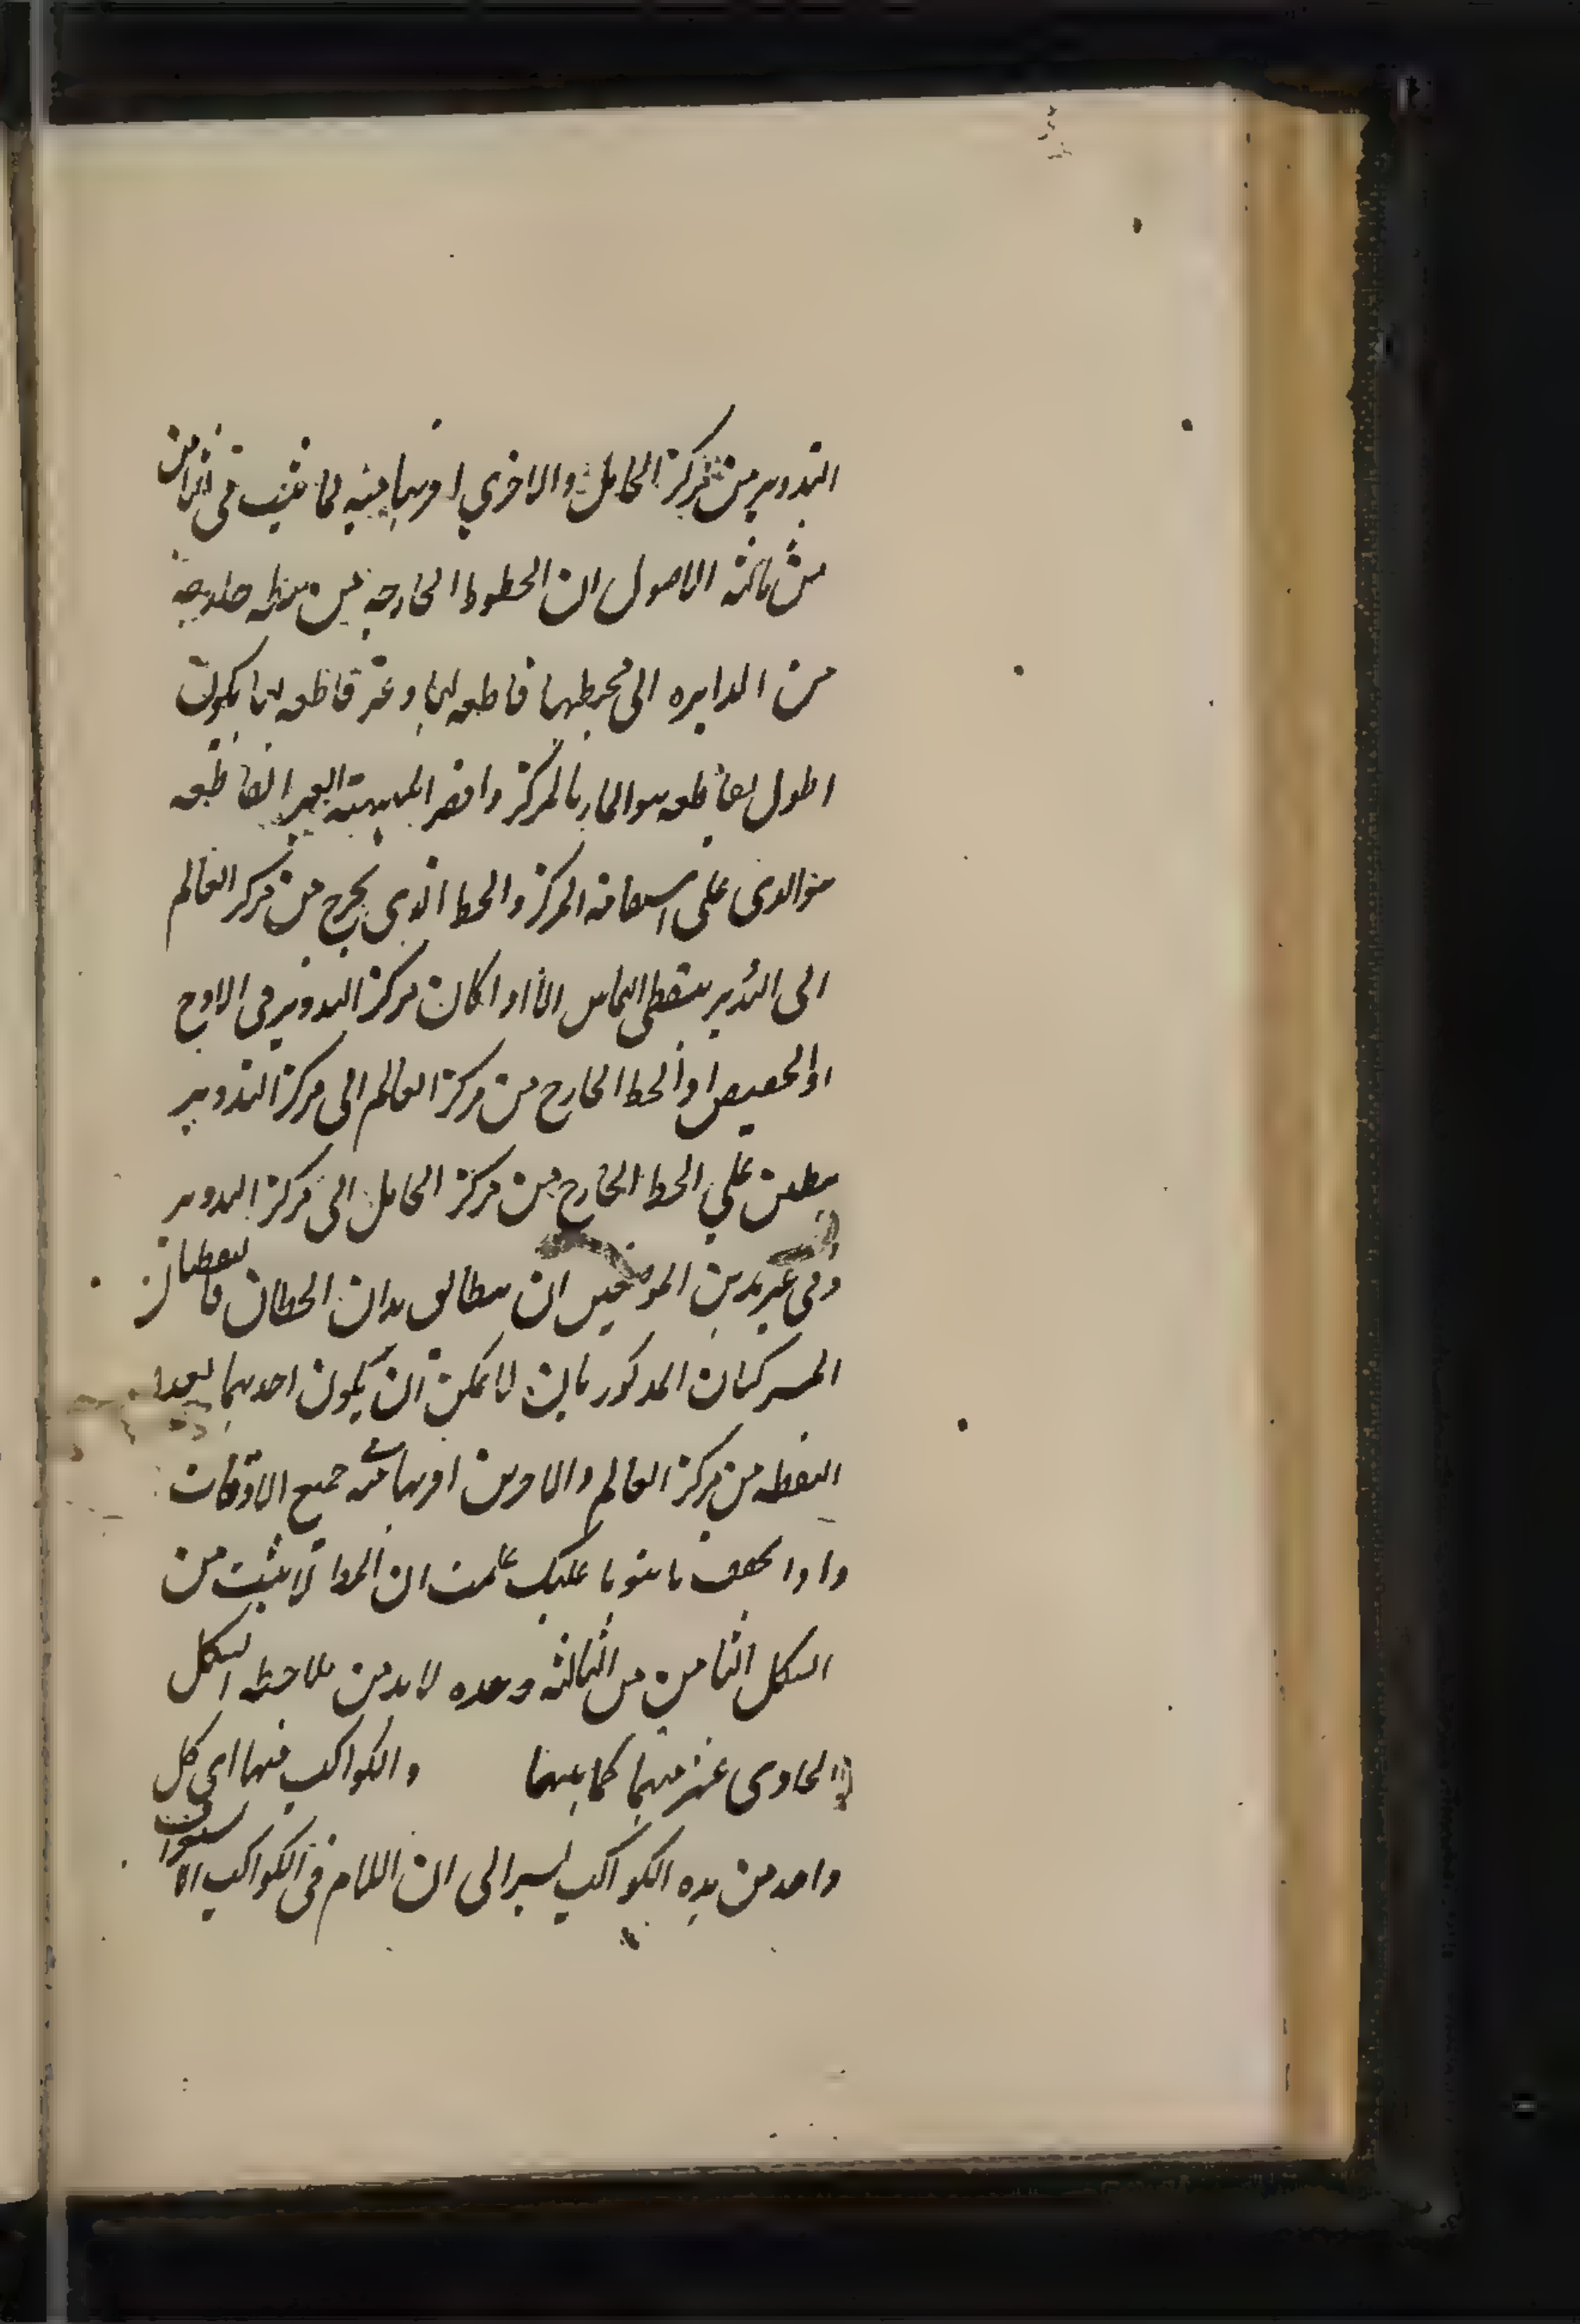 التدوير من مركز الحامل والاخرى اقربها منه لما ثبت فى الثامن
من ثالثة الاصول ان الخطوط الخارجه من نقطه خارجه
من الدايره الى محيطها قاطعه لها وغير قاطعه لها يكون
اطول القاطعه هو المار بالمركز واقصر المنتهيه الغير القاطعه
هو الذى على استقامه المركز والخط الذى يخرج من مركز العالم
الى التدوير بنقطى التماس الا اذا كان مركز التدوير فى الاوج
او الحضيض اذ الخط الخارج من مركز العالم الى مركز التدوير
ينطبق على الخط الخارج من مركز الحامل الى مركز التدوير
وفى غير هذين الموضعين ان يتطابق هذان الخطان فالنقطتان
المشتركتان المذكورتان لا يمكن ان يكون احدهما ابعد
النقطه من مركز العالم والاخرى اقربها منه فى جميع الاوقات
واذا تحقق ما تلونا عليك علمت ان المط لا يثبت من
الشكل الثامن من الثالثه وحده لا بد من ملاحظه الشكل
الحادى عشر منها كما بينها والكواكب فيها اى كل
واحد من هذه الكواكب يشير الى ان اللام فى الكواكب